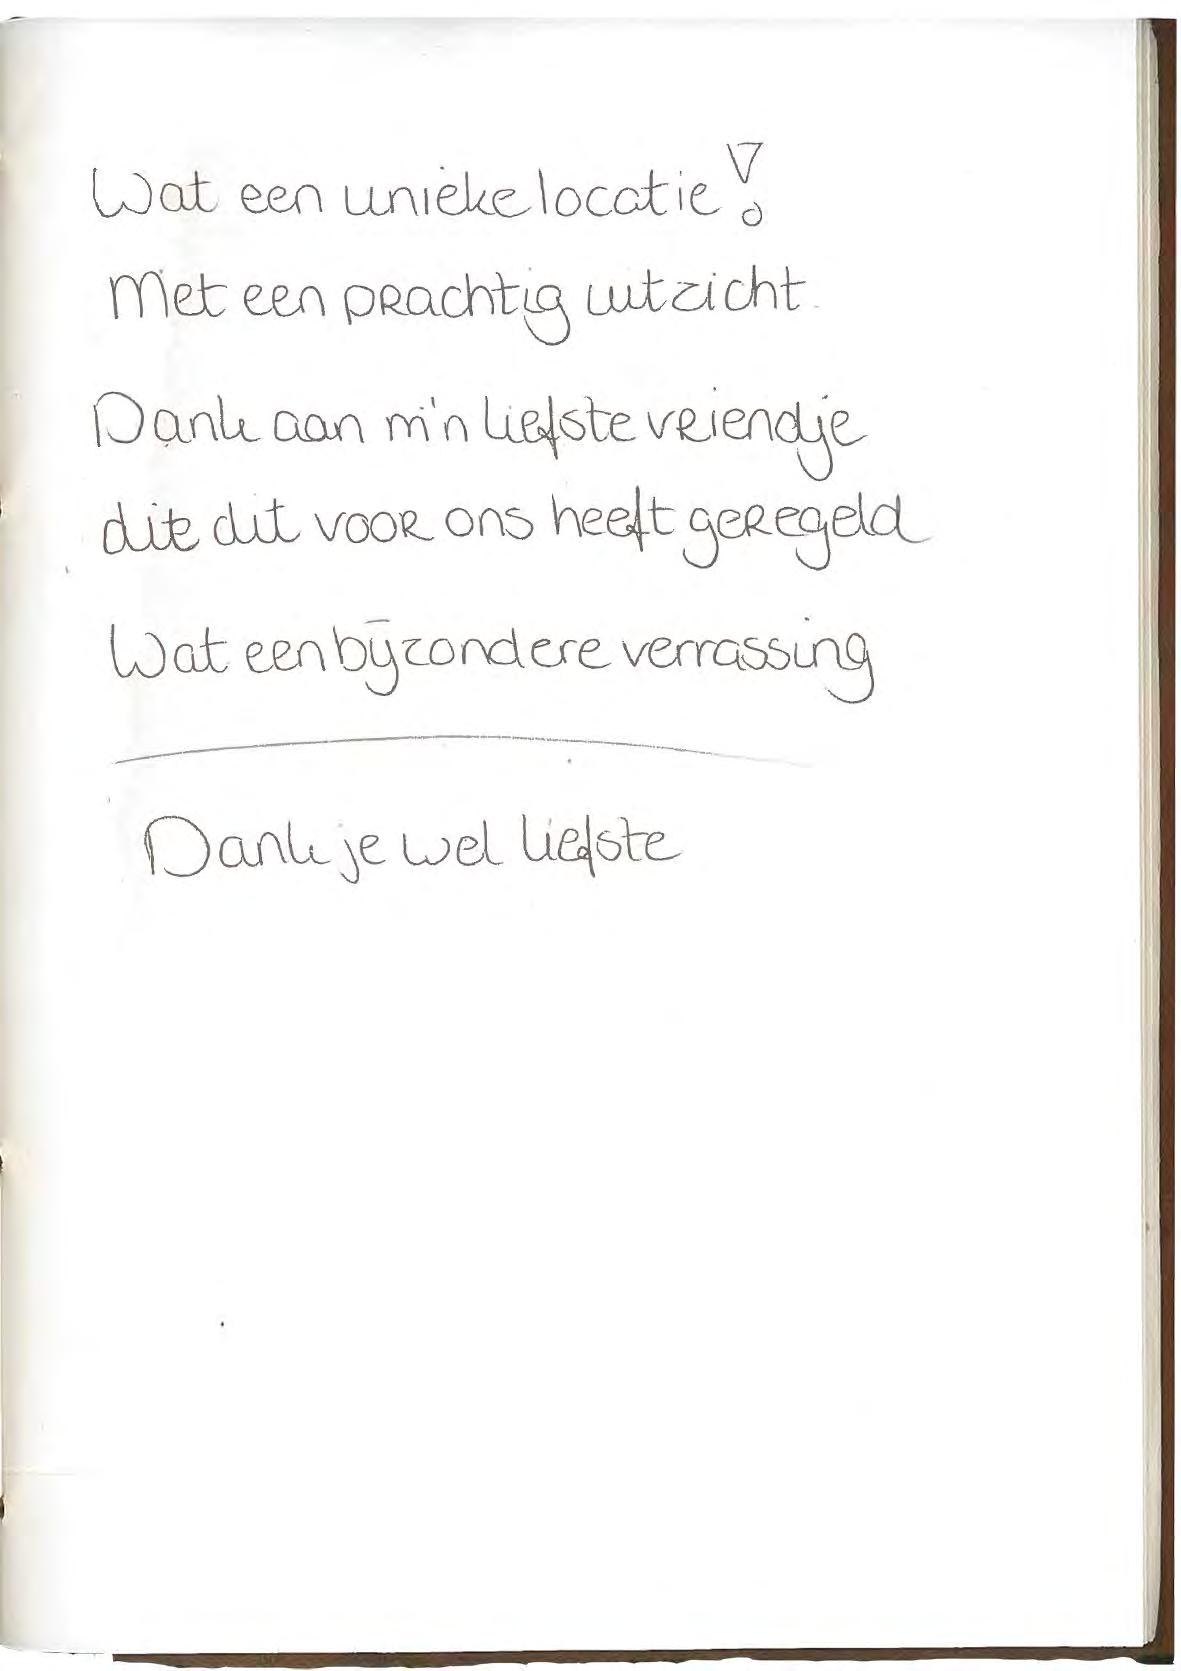 Wat een unieke locatie!
Met een prachtig uitzicht.
Dank aan m'n liefste vriendje
die dit voor ons heeft geregeld
Wat een bijzondere verrassing
Dank je wel liefste